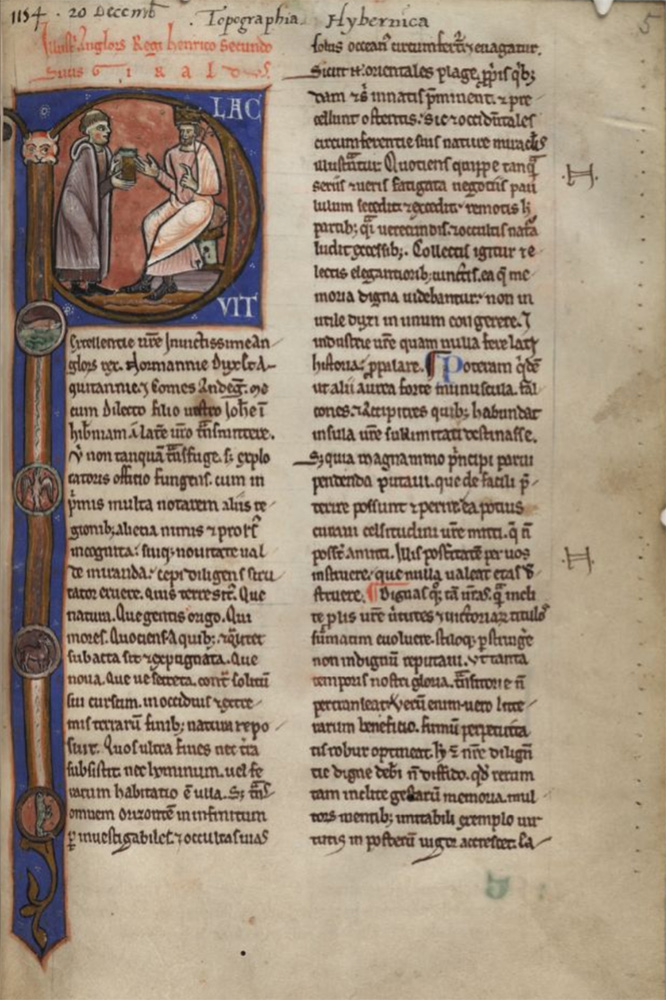 1154 . 20 Decemb Topographia Hybernica
5
Illustri Anglorͬ Regi henrico Secundo
Suus G i R A L D ꝰ S.
PLAC
VIT
Excellentie vr̄e Invictissime An
gloꝝ rex. Normannie Dux ⁊ A-
quitannie. ⁊ Comes Andeg̃. me
cum Dilecto filio vestro Ioh̄e ī
hib̄niam a latere vr̄o tñsmittere.
Vt non tanquā tñsfuga. sꝫ explo
ratoris officio fungens. cum in
p̾mis multa notarem aliis re
gionibꝫ aliena nimis ⁊ prorsͬ
incognita. suiqꝫ novitate val
de miranda. cepi diligens scru
tator eruere. quis terre sitͬ. Que
natura. Que gentis origo. Qui
mores. Quociens ⁊ A quibꝫ ⁊ qualiter
subacta sit ⁊ expugnata. Que
nova. Que ve secreta. cont̃ solitū
sui cursum. in occiduis ⁊ extre
mis terrarū finibꝫ natura repo
suit. Quos ultra fines nec t̃ra
subsistit. nec hominum. vel fe
rarum habitatio ē ulla. Sꝫ tñs
omnem orizontē in infinitum
ꝑ investigabiles. ⁊ occultas vias
solus occeanꝰ circumfertͬ ⁊ evagatur.
Sicut n̄ orientales plage. ꝓpriis qͥbꝫ
dam ⁊ sͥ innatis p̄minent. ⁊ pre
cellunt ostentis. Sic ⁊ occidētales
circumferentie suis nature miraclͥis
illustrātur. Quotiens quippe tanqͣ
seriis ⁊ veris fatigata negotiis pau
lulum secedit ⁊ excedit. remotis hͥ
partibꝫ qͣsi verecundis. ⁊ occultis natͣa
ludit excessibꝫ. Collectis igitur ⁊ e
lectis elegantioribꝫ cunctis. ea q̄ me
moria digna videbantur. non in
utile duxi in unum congerere. ⁊
industrie vr̄e quam nulla fere latꝫ
historia. ꝓpalare. ¶ Poteram qͥdē
ut alii aurea forte munuscula. fal
cones. ⁊ Accipitres quibꝫ habundat
insula vr̄e sublimitati destinasse.
Sꝫ quia magnanimo p̾ncipi parvi
pendenda putavi. que de facili p̄
terire possunt ⁊ perire ea potius
curavi celsitudini vr̄e mitti. q̄ ñ
possͭ amitti. Illis posteritatē per vos
instruere. que nulla valeat etas d̾
struere. ¶ Dignas qͦqꝫ tā īt̄ras. qͣ incli
te pͥlis vr̄e ūtutes ⁊ victoriaꝝ titulos
sūmatim evoluere. stiloqꝫ ꝑstringͬe
non indignū reputavi. ut tanta
temporis nostri gloria. tñsitorie ñ
pertranseat. verū enim vero litte
rarum beneficio. firmū perpetuita
tis robur optineat. Hͥ ⁊ nr̄e diligñ
tie digne debi ñ diffido. qd̄ rerum
tam inclite gestarū memoria. mul
torꝫ mentibꝫ imitabili exemplo vir
tutis in posterū vigor accrescet. Ea